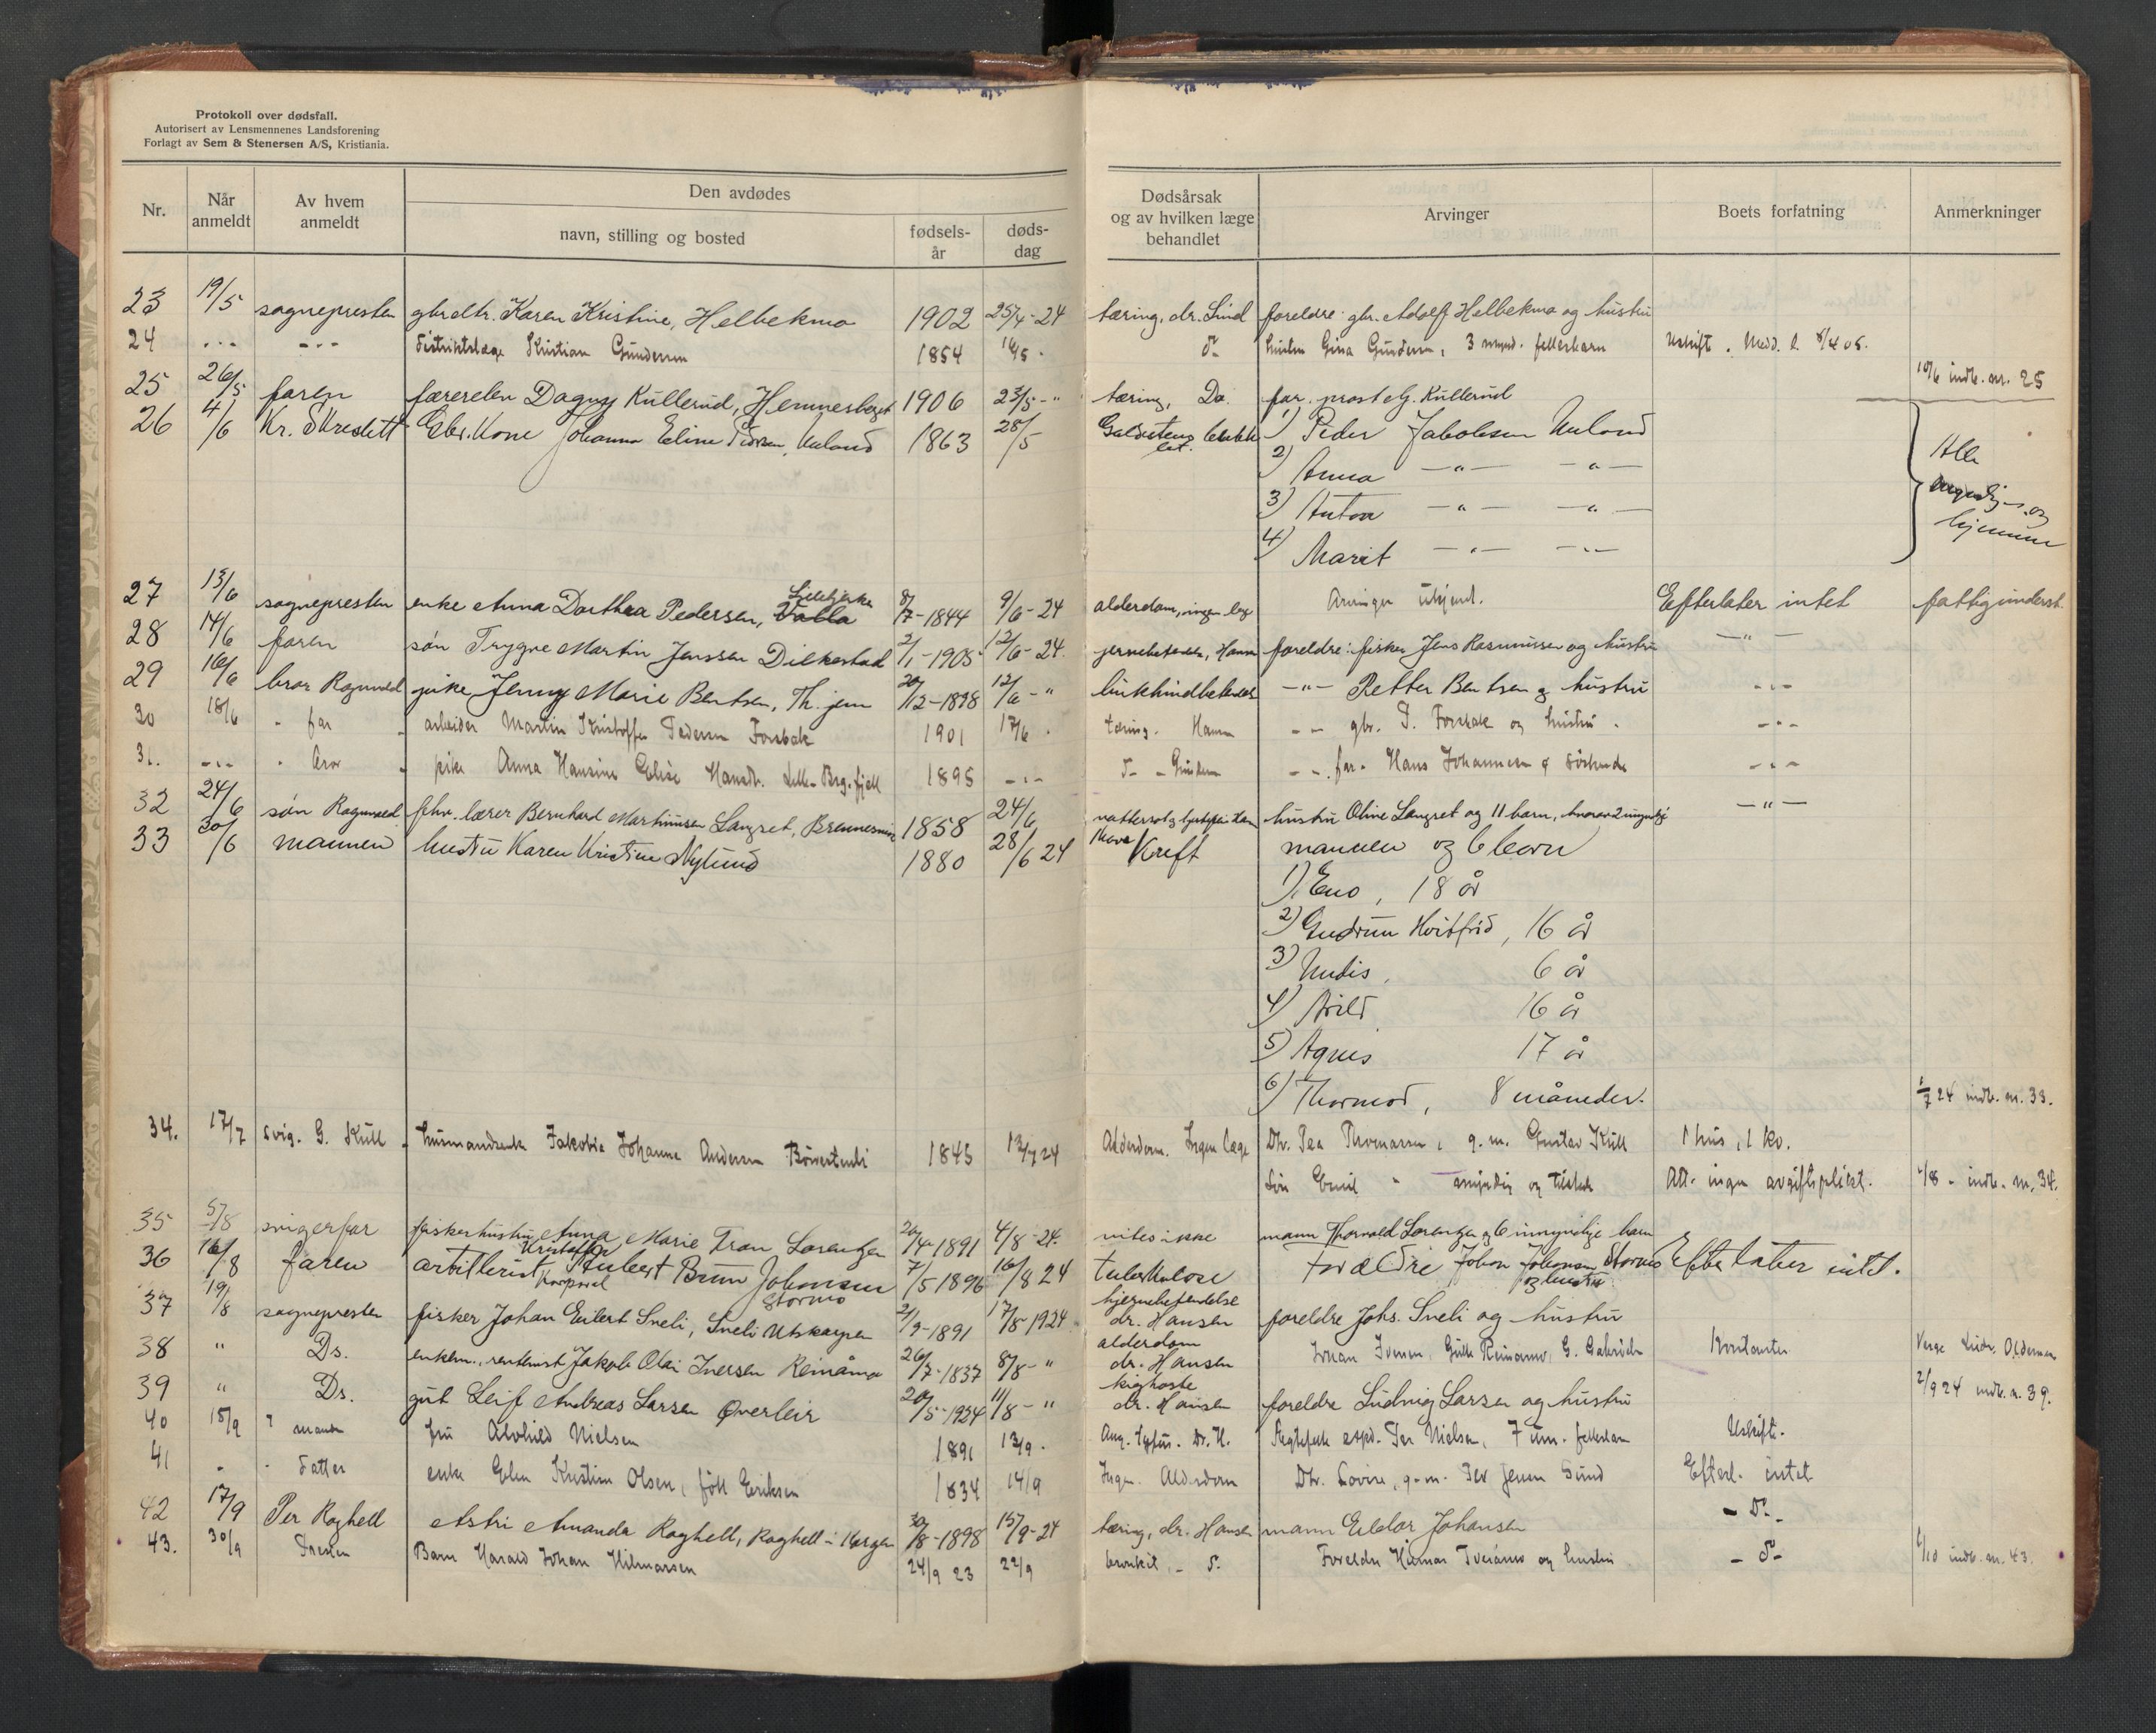 Protokoll over dødsfall.
Autorisert av Lensmennenes Landsforening
Forlagt av Sem & Stenersen A/S, Kristiania.
Nr.
Når anmeldt
Av hvem anmeldt
Den avdødes
navn, stilling og bosted
fødsels-år
døds-dag
Dødsårsak og av hvilken læge behandlet
Arvinger
Boets forfatning
Anmerkninger
23 19/5 sognepresten gbrdtr. Karen Kristine, Helbekmo 1902 25/4-24 tæring, dr. Lind foreldre: gbr. Adolf Helbekmo og hustru
24 -"- -"- Distriktslæge Kristian Gundersen 1854 16/5 - do hustru Gina Gundersen, 3 fellesbarn Uskift.
10/6 indb. nr. 25
25 26/5 faren Dagny Kullerud, Hemnesberget 1906 23/5-" tæring, Do. far prost G. Kullerud
26 4/6 Kr. Skreslett Gbr. Kone Johanna Eline Pedersen, Uuland 1863 28/5 1) Peder Jakobsen Uuland
2) Anna -"- -"-
3) Anton -"- -"-
4) Marit -"- -"-
Alle myndig og hjemme
27 13/6 sognepresten enke Anna Dorthea Pedersen, Valla 8/7-1844 9/6-24 alderdom, ingen læge Arvinger ukjendt. Efterlater intet fattigunderst.
28 14/6 faren søn Trygve Martin Jenssen Dilkestad 2/1-1905 12/6-24. foreldre: fisker Jens Rasmussen og hustru -"-
29 16/6 bror Ragnvald pike Jenny Marie Bentsen, Th. jem 20/12-1898 12/6-" bukhindbetendelse -"- Petter Bentsen og hustru -"-
30 18/6 " far arbeider Martin Kristoffer Pedersen Forsbak 1901 17/6 - tæring. Hansen -"- gbr. P. Forsbak og hustru. -"-
31. -"- " bror pike Anna Hansine Elise Hansdr. 1895 -"- do - Gundersen -"- far Hans Johannesen og søskende -"-
32 24/6 søn Ragnvald fhv. lærer Bernhard Martinusen Langset, Brennesvik 1858 24/6 hustru Oline Langset og 11 barn, hvorav 2 umyndige -"-
33 30/6 mannen hustru Karen Kristine Nylund 1880 28/6 24 Mave Kreft mannen og 6 barn
1) Eno, 18 år
2) Gudrun Hvitfrid, 16 år
3) Undis, 6 år
4) Arild 16 år
5) Agnes 17 år
6) Thormod, 8 måneder.
1/7 24 indb. nr. 33.
34. 17/7 svig. G. Kull husmandsenke Jakobia Johanna Andersen 1845 13/7 24 Alderdom. Ingen læge Dtr. Pea Thomassen, g. m. Gustav Kull 1 hus, 1 ko.
Søn Emil " myndig og tilstede Att. ingen avgiftsplikt. 1/8 - indb. nr. 34.
35 5/8 svigerfar fiskerhustru Anna Marie Tran Lorentzen 20/4-1891 4/8-24. vites ikke mann Thorvald Lorentzen og 6 umyndige barn
36 16/8 faren artillerist Kristoffer Hubert Brun Johansen Korporal Stormo 7/5 1896 16/8 24 tuberkulose Forældre Johan Johansen Stormo og hustru Efterlater intet.
37 19/8 sognepresten fisker Johan Eilert Sneli, Sneli Utskarpen 2/9-1891 17/8-1924 hjernebetendelse dr. Hansen foreldre Johs. Sneli og hustru
38 " Do. enkem., rentenist Jakob Olai Iversen Reinåmo 26/7-1837 8/8-" alderdom dr. Hansen Johan Iversen, Kontanter
39 " Do. gut Leif Andreas Larsen Øverleir 20/5-1924 11/8-" kighoste dr. Hansen foreldre Ludvig Larsen og hustru 2/9 24 indb. nr. 39.
40 15/9 mann fru Alvhild Nielsen 1891 13/9 - Dr. H. Per Nielsen, 7 um. fellesbarn Uskifte.
41 - - datter enke Elen Kristine Olsen, født Eriksen 1834 14/9 Ingen. Alderdom Dtr. Lovise, g. m. Per Jensen Sund Efterl. intet
42 17/9 Per Roghell Astri Amanda Roghell, Roghell i Korgen 30/8-1898 15/9-24 tæring, dr. Hansen mann Eldor Johansen - do -
43. 30/9 Presten Barn Harald Johan Hilmarsen 24/9 23 22/9 bronkit, - do. Foreldre Hilmar Tveråmo og hustru - do - 1/10 indb. nr. 43.